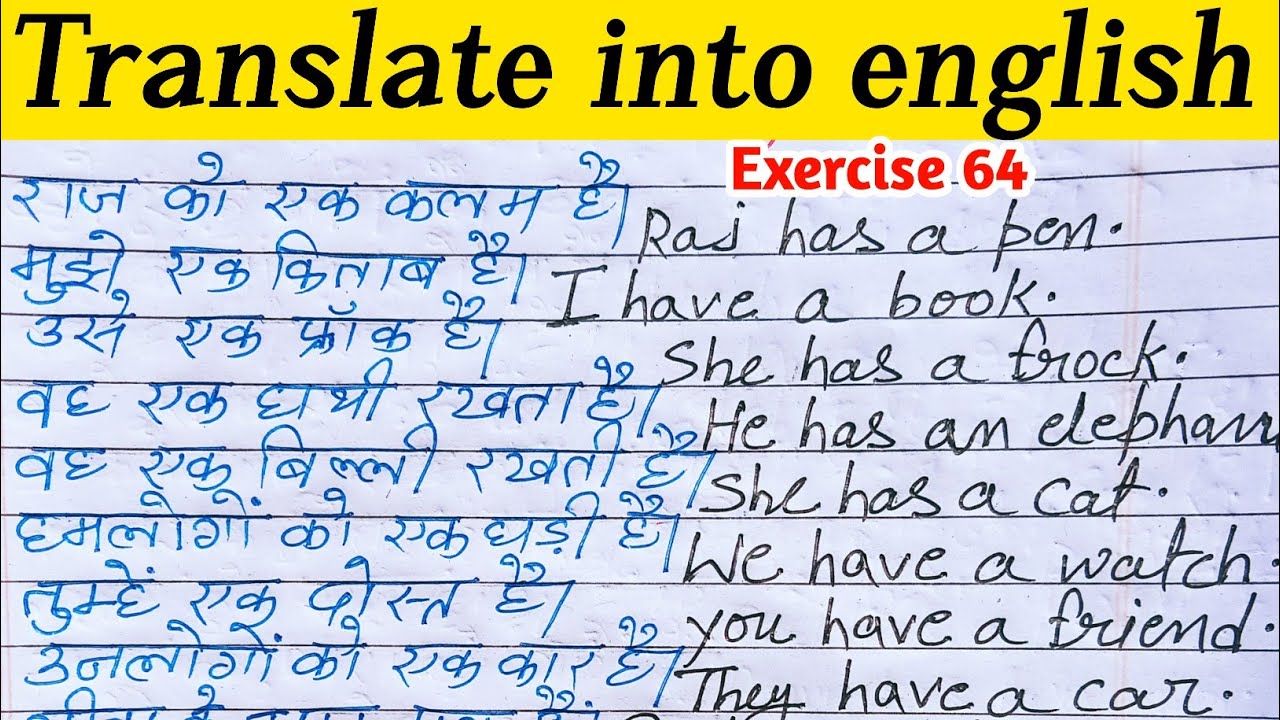 Translate into english
Exercise 64
राज को एक कलम है। Raj has a pen.
मुझे एक किताब है। I have a book.
उसे एक फ्रॉक है। She has a frock.
वह एक हाथी रखता है। He has an elephan
वह एक बिल्ली रखती है। She has a cat.
हमलोगों को एक घड़ी है। We have a watch.
तुम्हें एक दोस्त है। you have a friend.
उनलोगों को एक कार है। They have a car.